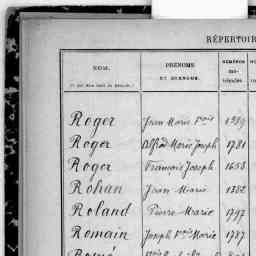 RÉPERTOIR
NOM.
PRÉNOMS
ET SURNOMS.
NUMÉROS
Roger Jean Marie 1989
Roger Alfred Marie Joseph 1781
Roger François Joseph 1658
Rohan Jean Marie 1382
Roland Pierre Marie 1797
Romain Joseph Marie 1787